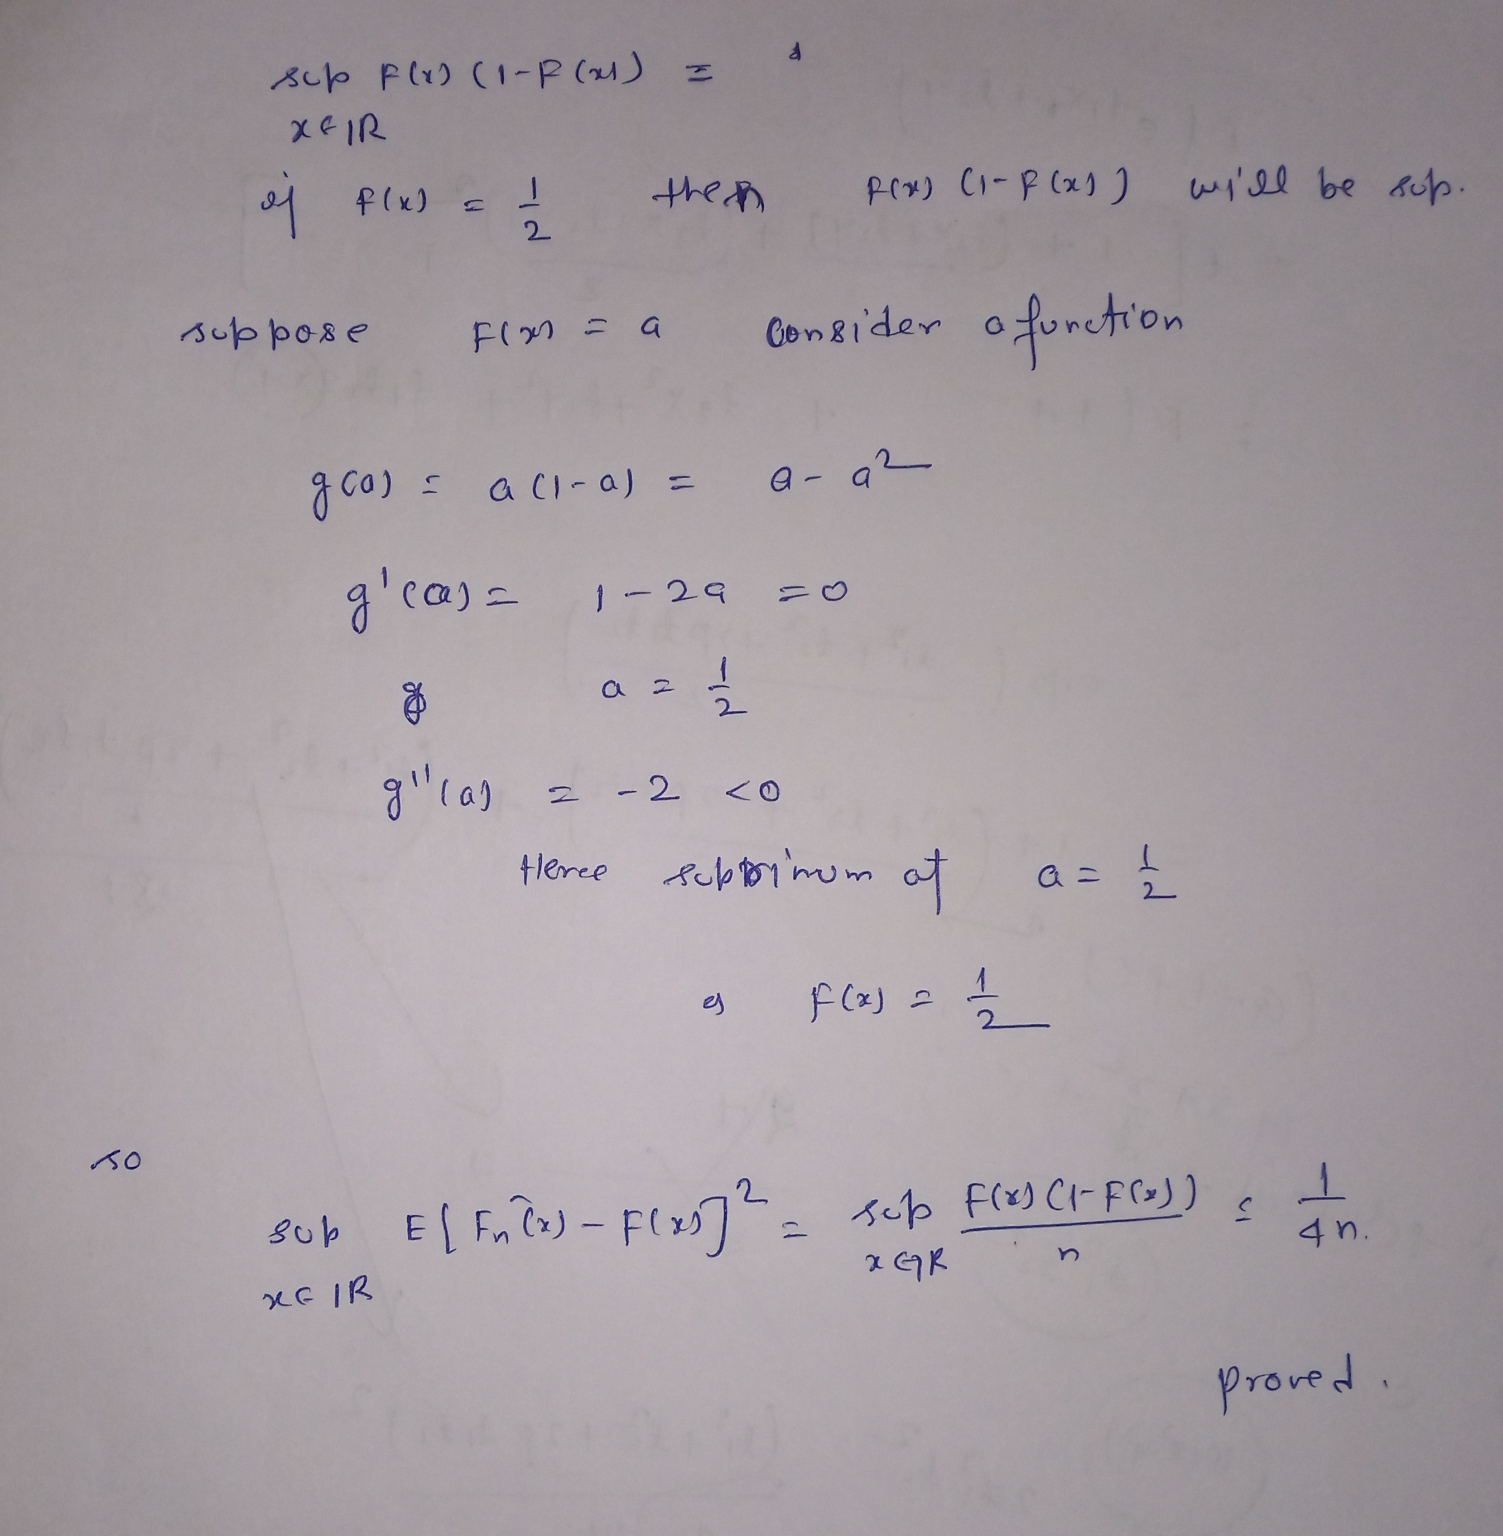 sup F(x) (1-F(x)) =
x∈IR
if F(x) = 1/2 then F(x) (1-F(x)) will be sup.
suppose F(x) = a Consider a function
g(a) = a(1-a) = a - a²
g'(a) = 1 - 2a = 0
a = 1/2
g''(a) = -2 < 0
Hence supprimum at a = 1/2
F(x) = 1/2
so
sup E[F̂n(x) - F(x)]² = sup F(x)(1-F(x))/n = 1/4n.
x∈IR x∈IR
proved.